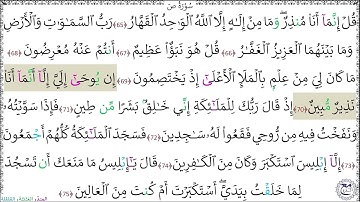 سُورَةُ صٓ
قُلْ إِنَّمَآ أَنَا۠ مُنذِرٌ ۖ وَمَا مِنْ إِلَـٰهٍ إِلَّا ٱللَّهُ ٱلْوَٰحِدُ ٱلْقَهَّارُ ﴿65﴾ رَبُّ ٱلسَّمَـٰوَٰتِ وَٱلْأَرْضِ
وَمَا بَيْنَهُمَا ٱلْعَزِيزُ ٱلْغَفَّـٰرُ ﴿66﴾ قُلْ هُوَ نَبَؤٌا۟ عَظِيمٌ ﴿67﴾ أَنتُمْ عَنْهُ مُعْرِضُونَ ﴿68﴾
مَا كَانَ لِىَ مِنْ عِلْمٍۭ بِٱلْمَلَإِ ٱلْأَعْلَىٰٓ إِذْ يَخْتَصِمُونَ ﴿69﴾ إِن يُوحَىٰٓ إِلَىَّ إِلَّآ أَنَّمَآ أَنَا۠
نَذِيرٌ مُّبِينٌ ﴿70﴾ إِذْ قَالَ رَبُّكَ لِلْمَلَـٰٓئِكَةِ إِنِّى خَـٰلِقٌۢ بَشَرًا مِّن طِينٍ ﴿71﴾ فَإِذَا سَوَّيْتُهُۥ
وَنَفَخْتُ فِيهِ مِن رُّوحِى فَقَعُوا۟ لَهُۥ سَـٰجِدِينَ ﴿72﴾ فَسَجَدَ ٱلْمَلَـٰٓئِكَةُ كُلُّهُمْ أَجْمَعُونَ
﴿73﴾ إِلَّآ إِبْلِيسَ ٱسْتَكْبَرَ وَكَانَ مِنَ ٱلْكَـٰفِرِينَ ﴿74﴾ قَالَ يَـٰٓإِبْلِيسُ مَا مَنَعَكَ أَن تَسْجُدَ
لِمَا خَلَقْتُ بِيَدَىَّ ۖ أَسْتَكْبَرْتَ أَمْ كُنتَ مِنَ ٱلْعَالِينَ ﴿75﴾